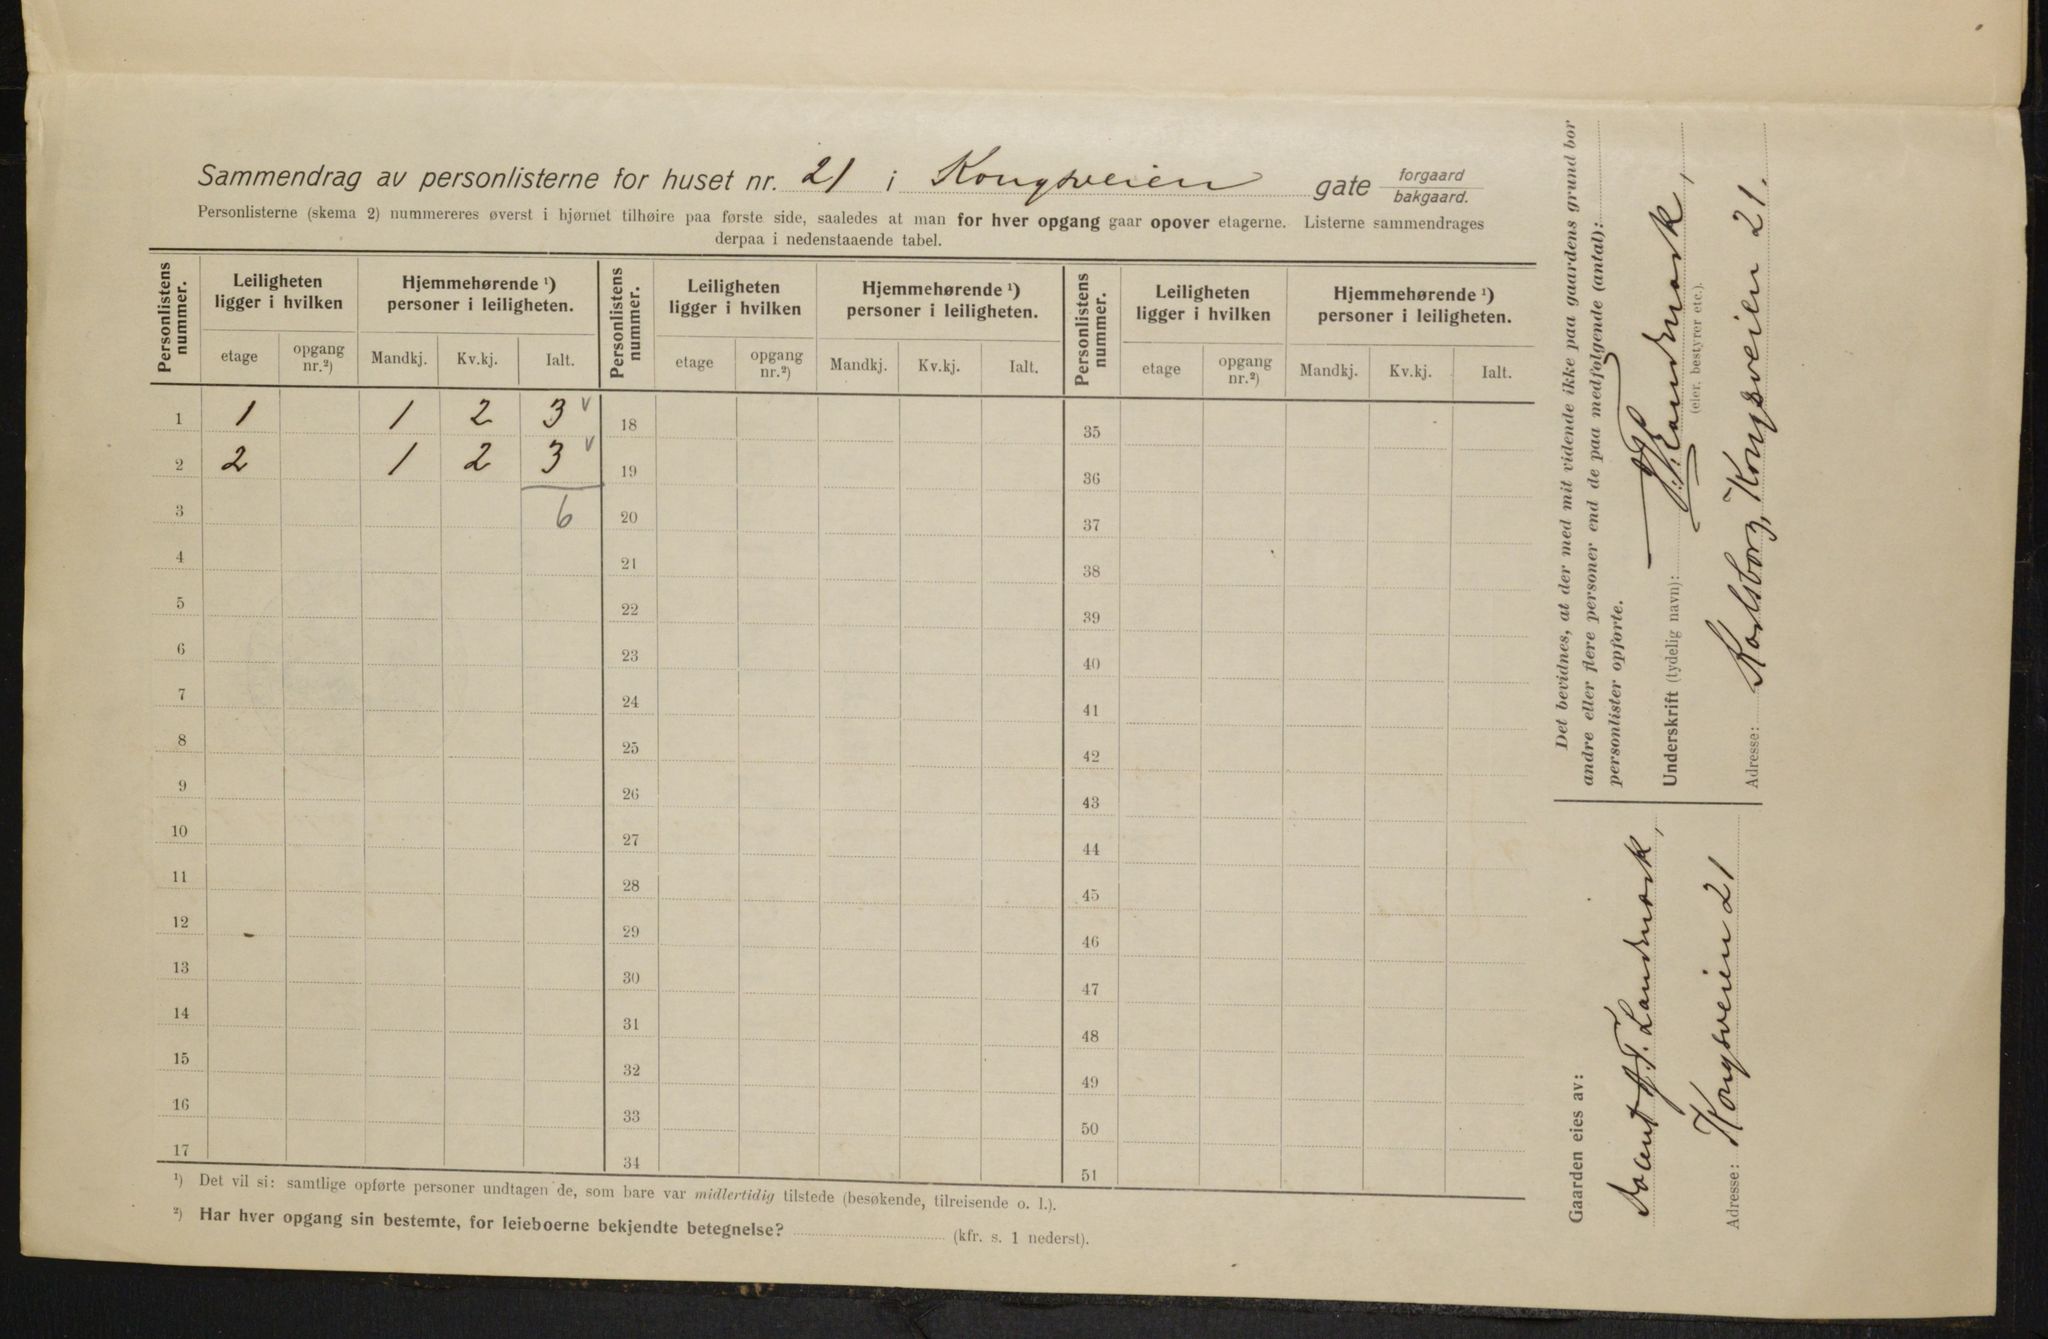 Sammendrag av personlisterne for huset nr. 21 i Kongsveien gate forgaard bakgaard.
Personlisterne (skema 2) nummereres øverst i hjørnet tilhøire paa første side, saaledes at man for hver opgang gaar opover etagerne. Listerne sammendrages
derpaa i nedenstaaende tabel.
Personlistens nummer. Leiligheten ligger i hvilken Hjemmehørende ¹) personer i leiligheten. Personlistens nummer. Leiligheten ligger i hvilken Hjemmehørende ¹) personer i leiligheten. Personlistens nummer. Leiligheten ligger i hvilken Hjemmehørende ¹) personer i leiligheten.
etage opgang nr.²) Mandkj. Kv.kj. Ialt. etage opgang nr.²) Mandkj. Kv.kj. Ialt. etage opgang nr.²) Mandkj. Kv.kj. Ialt.
1 1 1 2 3 v 18 35
2 2 1 2 3 v 19 36
3 6 20 37
4 21 38
5 22 39
6 23 40
7 24 41
8 25 42
9 26 43
10 27 44
11 28 45
12 29 46
13 30 47
14 31 48
15 32 49
16 33 50
17 34 51
¹) Det vil si: samtlige opførte personer undtagen de, som bare var midlertidig tilstede (besøkende, tilreisende o. l.).
²) Har hver opgang sin bestemte, for leieboerne bekjendte betegnelse? (kfr. s. 1 nederst).
Det bevidnes, at der med mit vidende ikke paa gaardens grund bor
andre eller flere personer end de paa medfølgende (antal):
personlister opførte.
Underskrift (tydelig navn): J. F. Landmark,
(eier, bestyrer etc.).
Adresse: Karlsborg, Kongsveien 21.
Gaarden eies av:
J. F. Landmark,
Adresse: Kongsveien 21